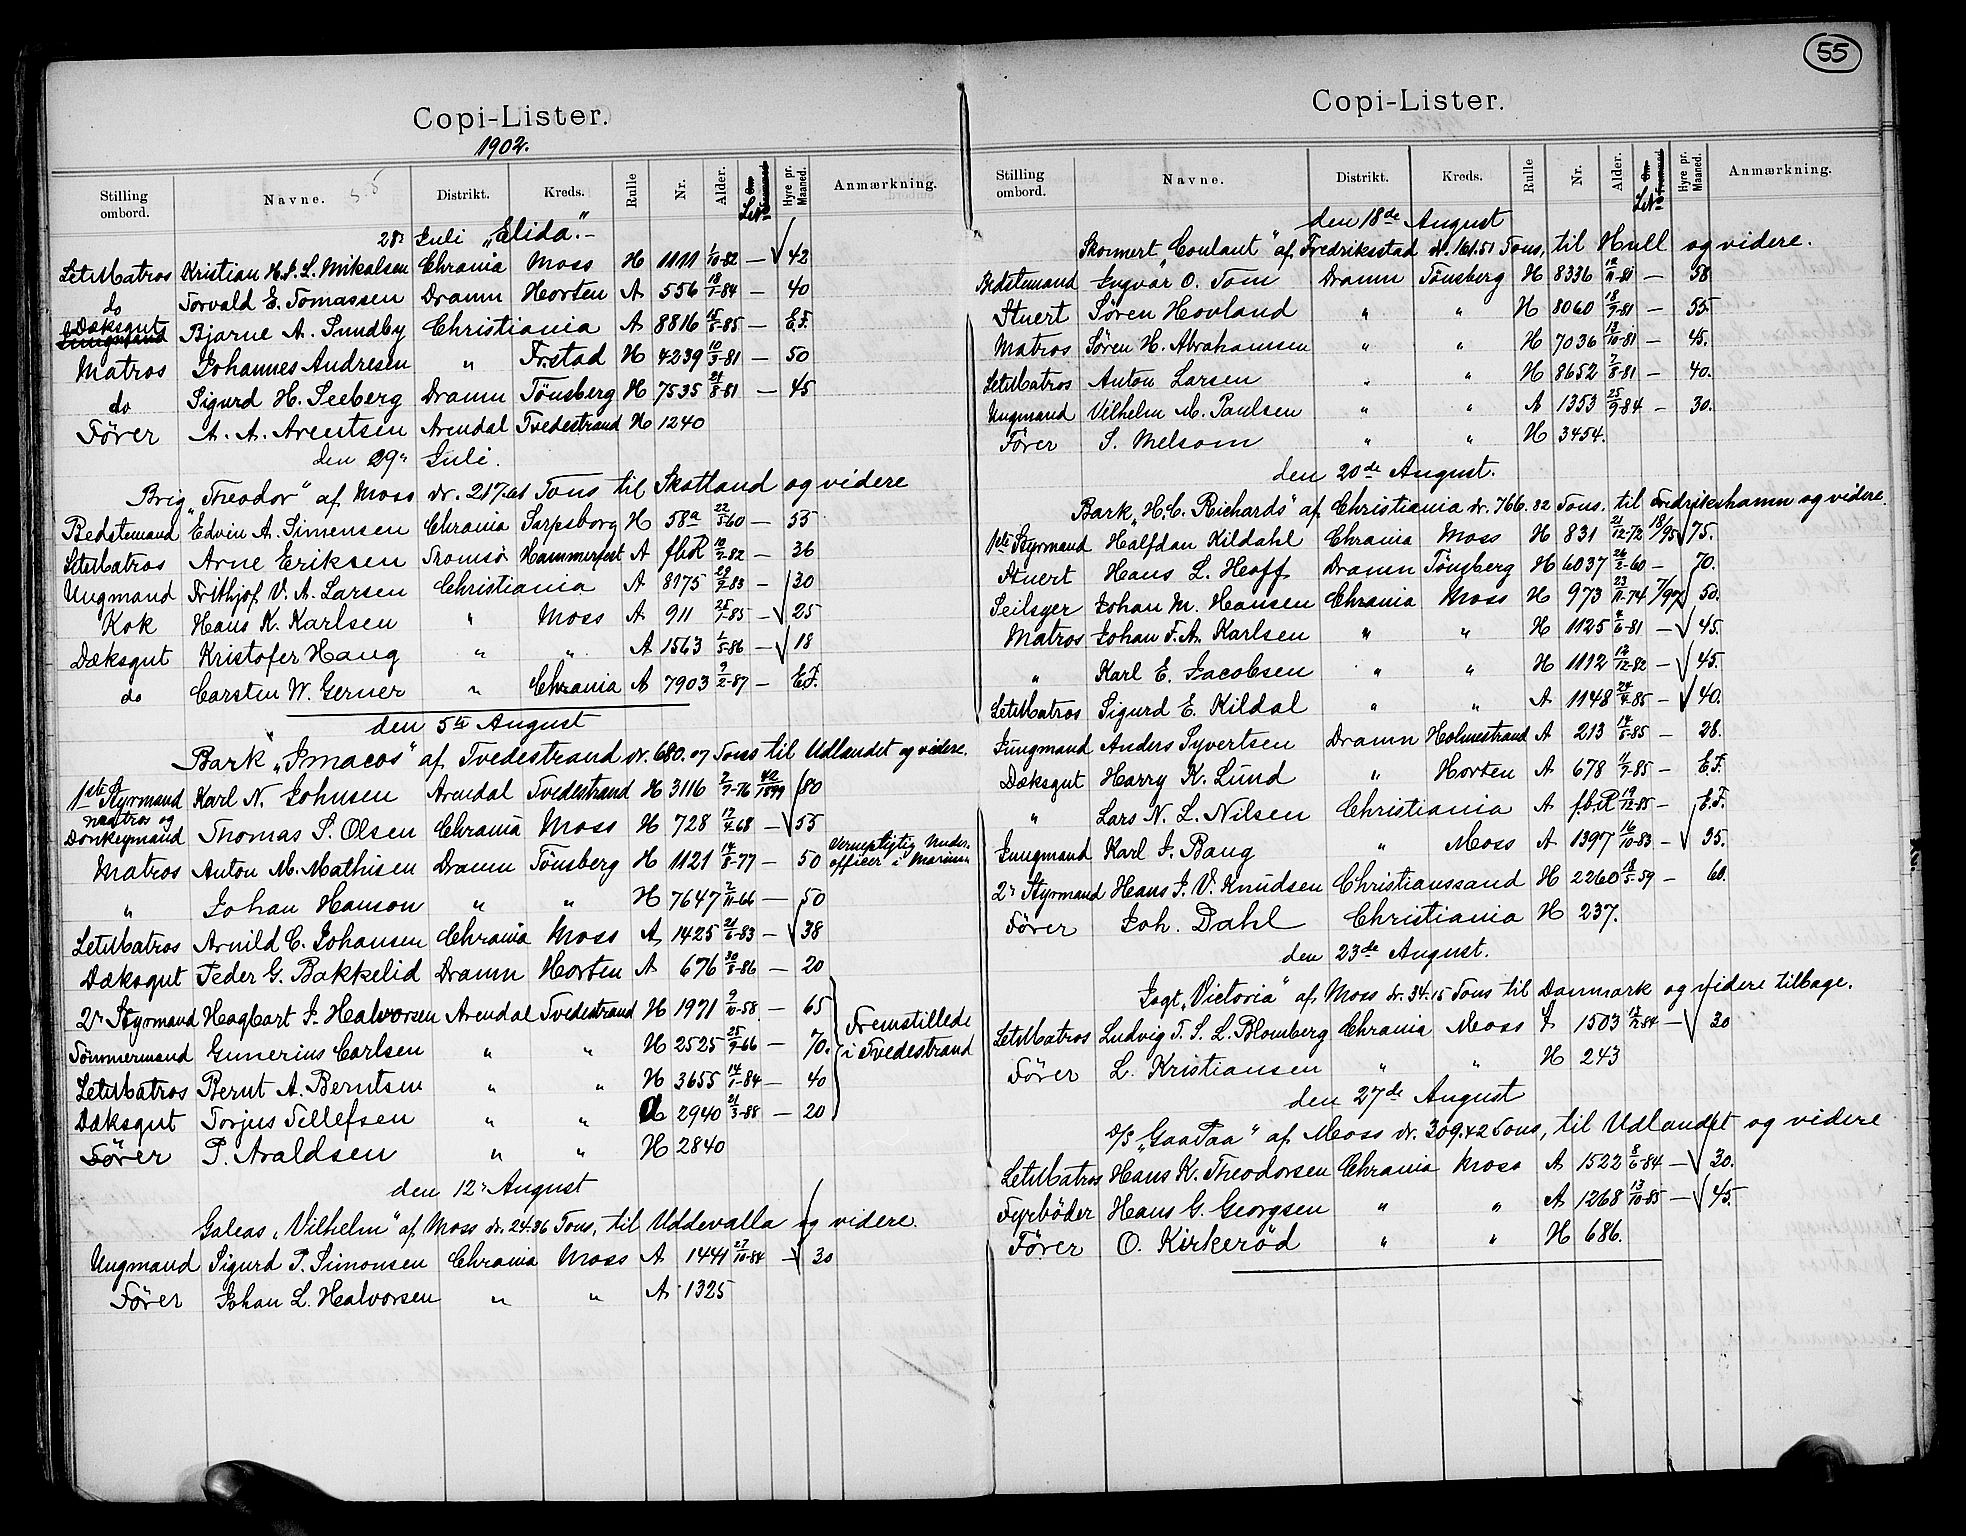 55
Copi-Lister.
1902.
Stilling ombord. Navne. Distrikt. Kreds. Rulle Nr. Alder. Hyre pr. Maaned. Anmærkning.
28' Juli "Elida".
LetMatros Kristian H.J.L. Mikalsen Chrania Moss H 1111 1/10-82 — 42
do Torvald E. Tomassen Dramn Horten A 556 18/1-84 — 40
Dæksgut Bjarne A. Sundby Christiania A 8816 15/8-85 — E.F.
Matros Johannes Andresen " Frstad H 4239 10/9-81 — 50
do Sigurd H. Seeberg Dramn Tönsberg H 7535 21/8-81 — 45
Förer A. A. Arentsen Arendal Tvedestrand H 1240
den 29" Juli.
Brig "Theodor" af Moss dr. 217.61 Tons til Skotland og videre
Bedstemand Edvin A. Simensen Chrania Sarpsborg H 58a 22/5-60 — 55
LetMatros Arne Eriksen Tromsö Hammerfest A fb.R 10/7-82 — 36
Ungmand Frithjof V. A. Larsen Christiania A 8175 29/9-83 — 30
Kok Hans K. Karlsen " Moss A 911 25/7-85 — 25
Dæksgut Kristofer Haug " " A 1563 1/5-86 — 18
do Carsten W. Gerner " Chrania A 7903 9/2-87 — E.F.
den 5te August
Bark "Imacos" af Tvedestrand dr. 680.07 Tons til Udlandet og videre.
1ste Styrmand Karl N. Johnsen Arendal Tvedestrand H 3116 2/7-76 40/1899 80
Matros og Donkeymand Thomas S. Olsen Chrania Moss H 728 17/4-68 — 55
Matros Anton M. Mathisen Dramn Tönsberg H 1121 14/8-77 — 50 Vernepligtig Under-officer i Marinen
" Johan Hanson " " H 7647 2/11-66 — 50
LetMatros Arnild C. Johansen Chrania Moss A 1425 21/6-83 — 38
Dæksgut Peder G. Bakkelid Dramn Horten A 676 30/8-86 — 20
2' Styrmand Hagbart J. Halvorsen Arendal Tvedestrand H 1971 9/10-58 — 65 Fremstillede
Tömmermand Gunerius Carlsen " " H 2525 25/9-66 — 70. i Tvedestrand
LetMatros Bernt A. Berntsen " " H 3655 14/1-84 — 40
Dæksgut Torjus Tellefsen " " A 2940 21/3-88 — 20
Förer P. Araldsen " " H 2840
den 12' August
Galeas "Vilhelm" af Moss dr. 24.96 Tons, til Uddevalla og videre.
Ungmand Sigurd P. Simonsen Chrania Moss A 1441 27/10-84 — 30
Förer Johan L. Halvorsen " " A 1325
Copi-Lister.
Stilling ombord. Navne. Distrikt. Kreds. Rulle Nr. Alder. Hyre pr. Maaned. Anmærkning.
den 18de August
Skonnert "Coulant" af Fredriksstad dr. 161.51 Tons, til Hull og videre.
Bedstemand Ingvar O. Tom Dramn Tönsberg H 8336 12/11-81 — 58
Stuert Sören Hovland " " H 8060 18/9-81 — 55.
Matros Sören H. Abrahamsen " " H 7036 13/10-81 — 45.
LetMatros Anton Larsen " " H 8652 7/8-81 — 40.
Ungmand Vilhelm M. Paulsen " " A 1353 25/9-84 — 30.
Förer S. Melsom " " H 3454.
den 20de August.
Bark "H.C. Richards" af Christiania dr. 766.82 Tons. til Fredrikshamn og videre.
1ste Styrmand Halfdan Kildahl Chrania Moss H 831 21/12-72 18/95 75.
Stuert Hans L. Hoff Dramn Tönsberg H 6037 26/2-60 — 70.
Seilsyer Johan M. Hansen Chrania Moss H 973 23/11-74 7/97 50.
Matros Johan F.A. Karlsen " " H 1125 4/6-81 — 45.
" Karl E. Jacobsen " " H 1112 12/12-82 — 45.
LetMatros Sigurd E. Kildal " " A 1148 24/4-85 — 40.
Jungmand Anders Syvertsen Dramn Holmestrand A 213 14/6-85 — 28.
Dæksgut Harry K. Lund " Horten A 678 11/7-85 — E.F.
" Lars N. L. Nilsen Christiania A f.b.R 19/12-85 — E.F.
Jungmand Karl J. Baug " Moss A 1397 16/10-83 — 35.
2' Styrmand Hans J. V. Knudsen Christianssand H 2260 18/5-59 — 60.
Förer Joh. Dahl Christiania H 237.
den 23de August.
Jagt "Victoria" af Moss dr. 34.15 Tons til Danmark og videre tilbage.
LetMatros Ludvig T. S. L. Blomberg Chrania Moss A 1503 17/2-84 — 30
Förer L. Kristiansen " " H 243
den 27de August
D/S "GaaPaa" af Moss dr. 309.42 Tons, til Udlandet og videre
LetMatros Hans K. Theodorsen Chrania Moss A 1522 8/6-84 — 30.
Fyrböder Hans G. Georgsen " " A 1268 13/10-85 — 45.
Förer O. Kirkeröd " " H 686.